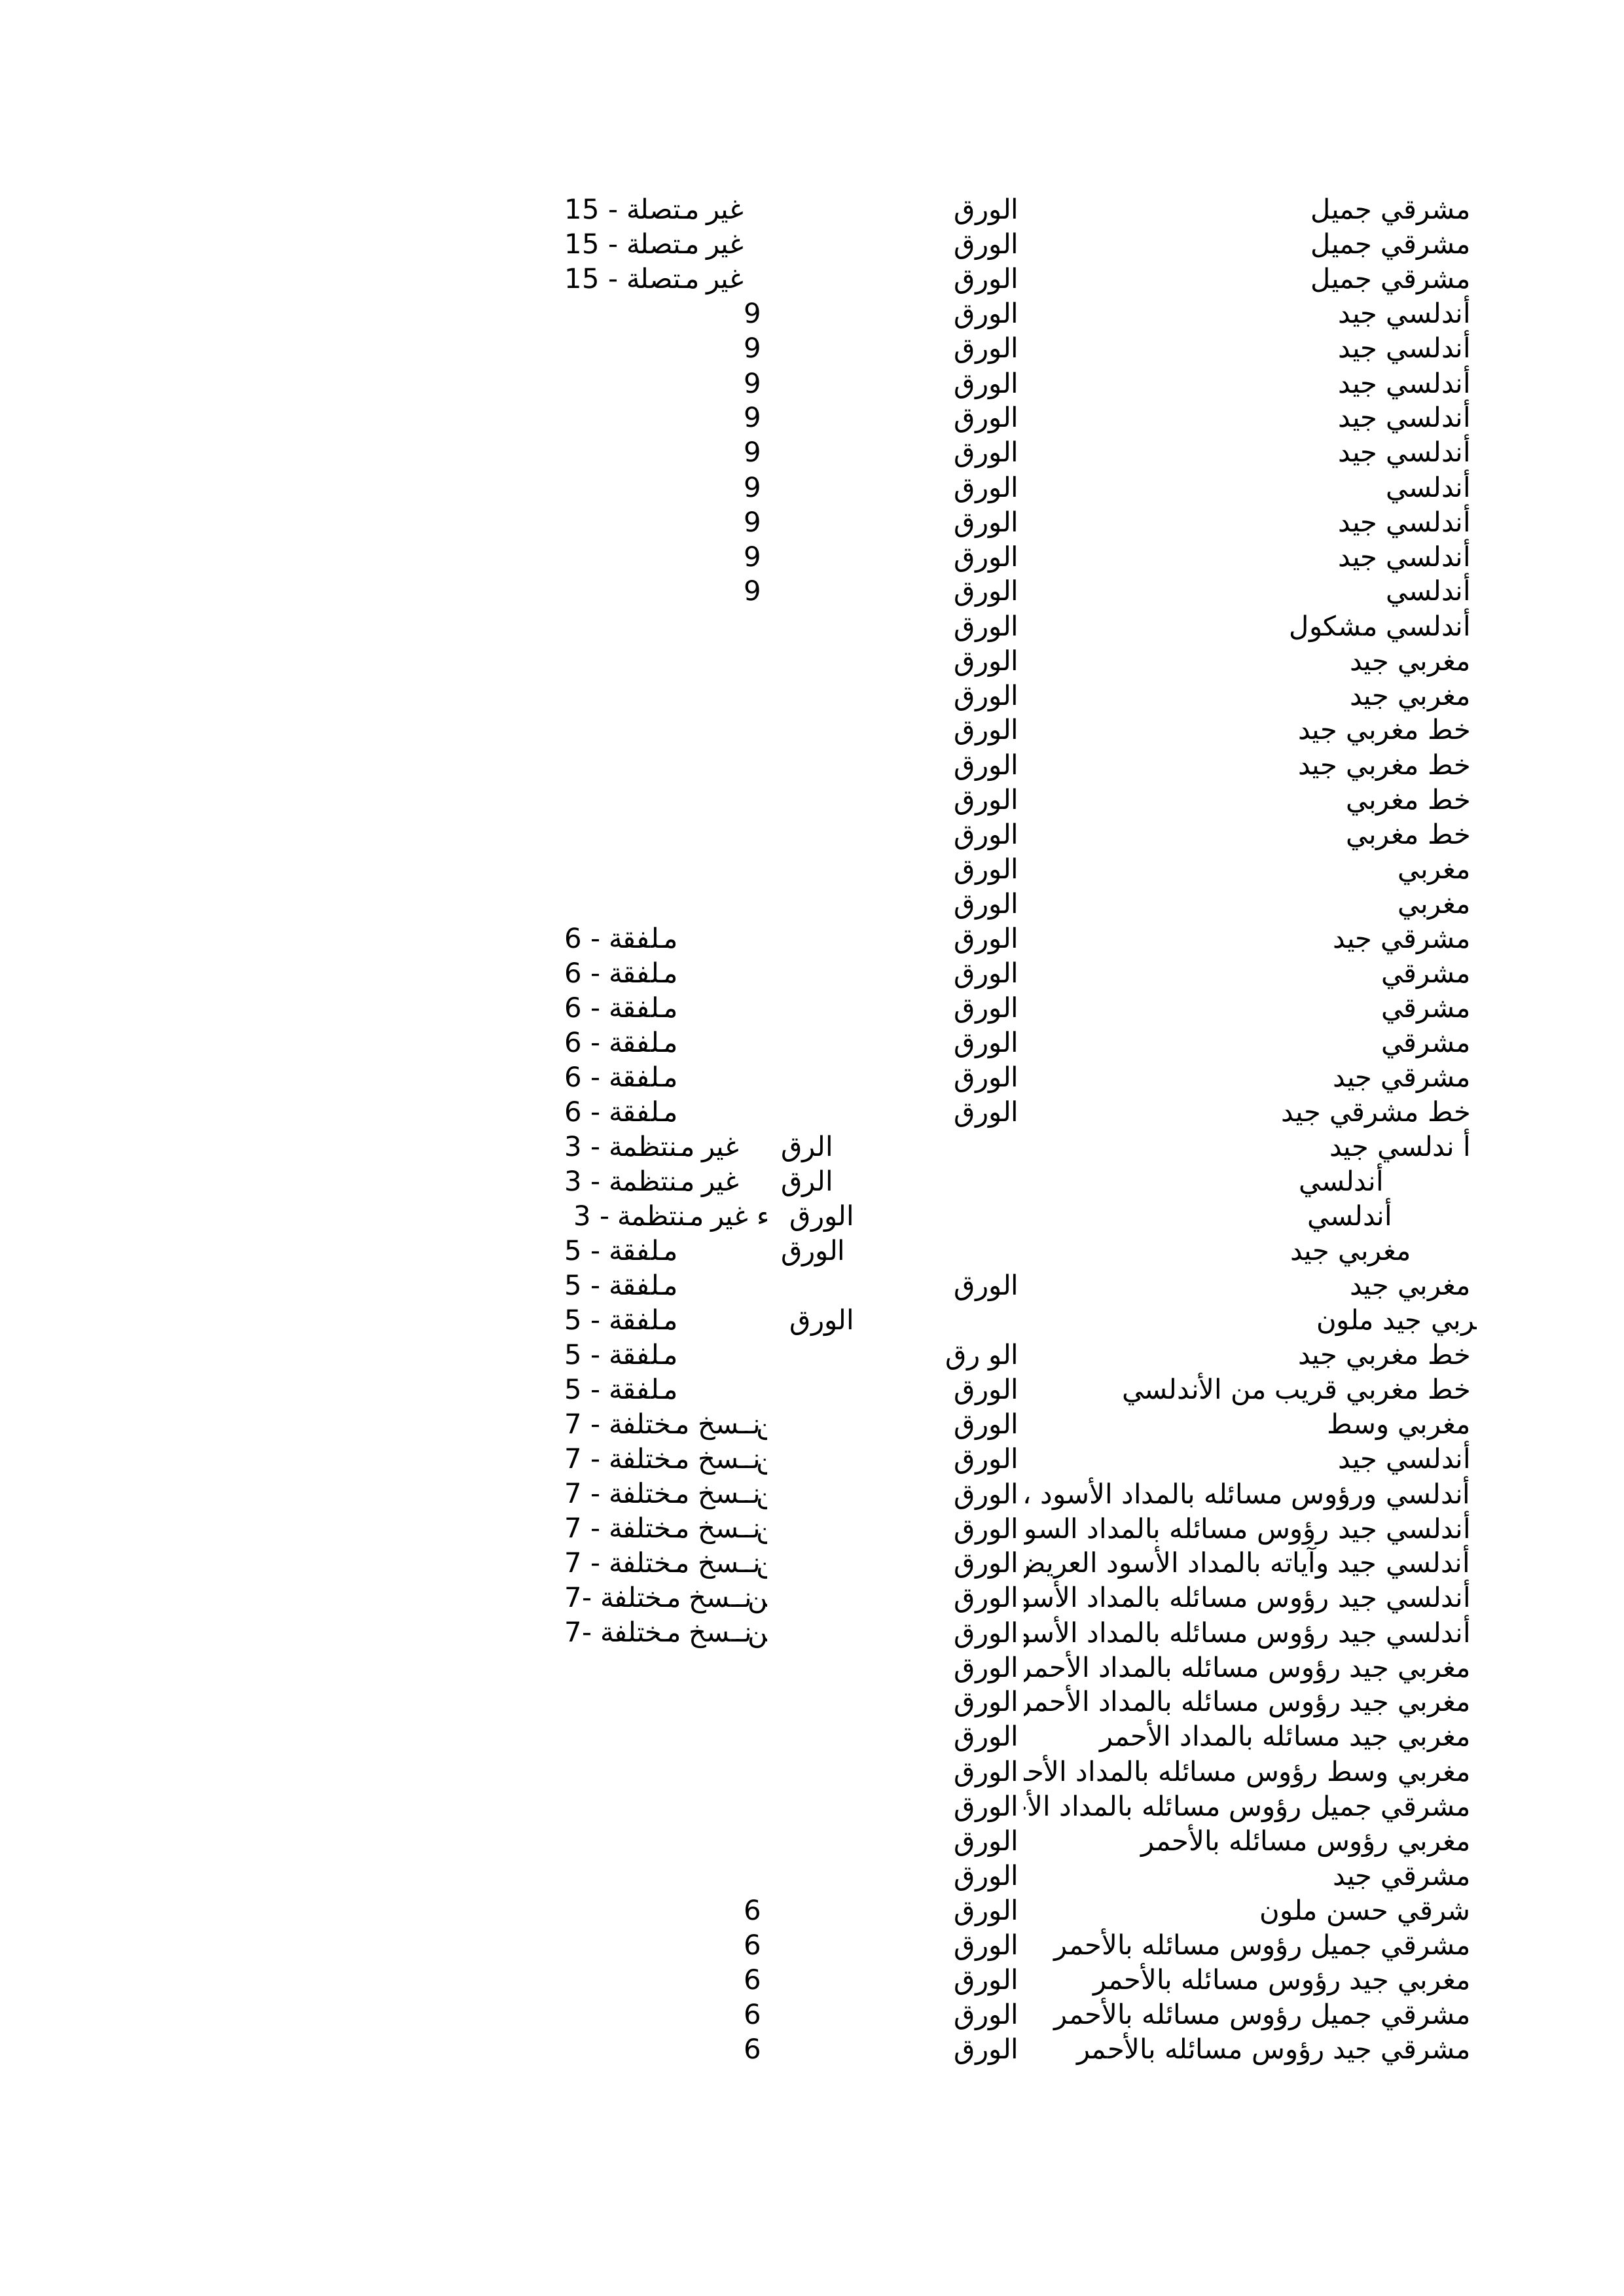 مشرقي جميل الورق 15 - غير متصلة
مشرقي جميل الورق 15 - غير متصلة
مشرقي جميل الورق 15 - غير متصلة
أندلسي جيد الورق 9
أندلسي جيد الورق 9
أندلسي جيد الورق 9
أندلسي جيد الورق 9
أندلسي جيد الورق 9
أندلسي الورق 9
أندلسي جيد الورق 9
أندلسي جيد الورق 9
أندلسي الورق 9
أندلسي مشكول الورق
مغربي جيد الورق
مغربي جيد الورق
خط مغربي جيد الورق
خط مغربي جيد الورق
خط مغربي الورق
خط مغربي الورق
مغربي الورق
مغربي الورق
مشرقي جيد الورق 6 - ملفقة
مشرقي الورق 6 - ملفقة
مشرقي الورق 6 - ملفقة
مشرقي الورق 6 - ملفقة
مشرقي جيد الورق 6 - ملفقة
خط مشرقي جيد الورق 6 - ملفقة
أ ندلسي جيد الرق 3 - غير منتظمة
أندلسي الرق 3 - غير منتظمة
أندلسي الورق 3 - غير منتظمة
مغربي جيد الورق 5 - ملفقة
مغربي جيد الورق 5 - ملفقة
جيد ملون الورق 5 - ملفقة
خط مغربي جيد الو رق 5 - ملفقة
خط مغربي قريب من الأندلسي الورق 5 - ملفقة
مغربي وسط الورق 7 - نسخ مختلفة
أندلسي جيد الورق 7 - نسخ مختلفة
أندلسي ورؤوس مسائله بالمداد الأسود ، الورق 7 - نسخ مختلفة
أندلسي جيد رؤوس مسائله بالمداد الورق 7 - نسخ مختلفة
أندلسي جيد وآياته بالمداد الأسود العريض الورق 7 - نسخ مختلفة
أندلسي جيد رؤوس مسائله بالمداد الورق 7- نسخ مختلفة
أندلسي جيد رؤوس مسائله بالمداد الورق 7- نسخ مختلفة
مغربي جيد رؤوس مسائله بالمداد الأحمر الورق
مغربي جيد رؤوس مسائله بالمداد الأحمر الورق
مغربي جيد مسائله بالمداد الأحمر الورق
مغربي وسط رؤوس مسائله بالمداد الورق
مشرقي جميل رؤوس مسائله بالمداد الورق
مغربي رؤوس مسائله بالأحمر الورق
مشرقي جيد الورق
شرقي حسن ملون الورق 6
مشرقي جميل رؤوس مسائله بالأحمر الورق 6
مغربي جيد رؤوس مسائله بالأحمر الورق 6
مشرقي جميل رؤوس مسائله بالأحمر الورق 6
مشرقي جيد رؤوس مسائله بالأحمر الورق 6